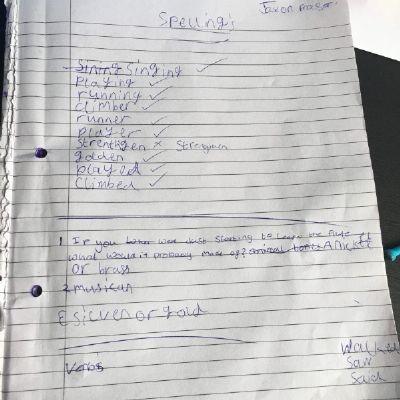 Jaxon
Spelling's
Sining Singing
Playing
running
climber
runner
player
Strenthgen × Strengthen
golden
played
Climbed
1 If you were Just Starting to the flute
what would it probably made of? A nickle
or brass
2 musican
silver or gold
Verbs
Walked
Saw
Said